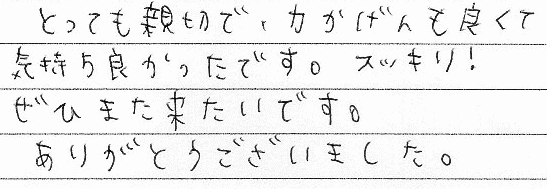 とっても親切で、力かげんも良くて
気持ち良かったです。スッキリ!
ぜひまた来たいです。
ありがとうございました。